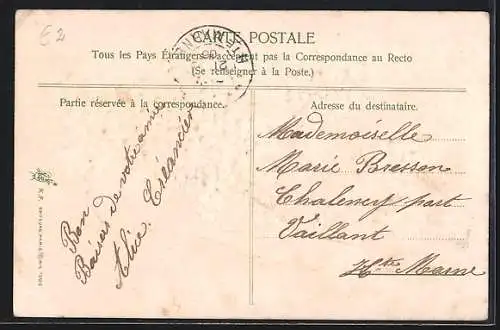 £2
CARTE POSTALE
Tous les Pays Étrangers n'acceptent pas la Correspondance au Recto
(Se renseigner à la Poste.)
Partie réservée à la correspondance.
Bon
Baisers de votre amie
Alice
Adresse du destinataire.
Mademoiselle
Marie Bresson
Chalencey part
Vaillant
Hte Marne